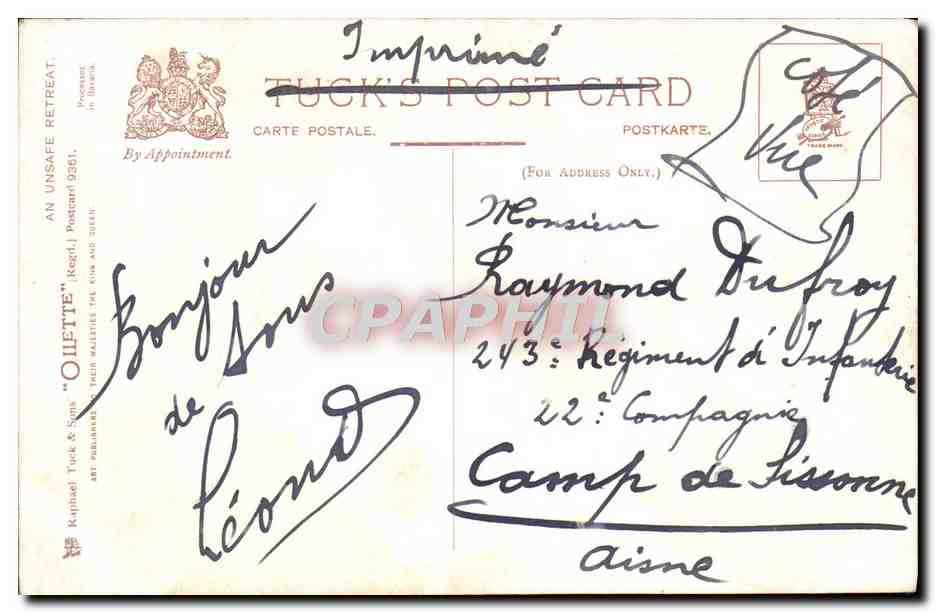 Imprimé
TUCK'S POST CARD
CARTE POSTALE.
POSTKARTE.
By Appointment.
(FOR ADDRESS ONLY.)
TRADE MARK
côté
vue
AN UNSAFE RETREAT.
Processed
in Bavaria.
Raphael Tuck & Sons' "OILETTE" [Regd.] Postcard 9361.
ART PUBLISHERS TO THEIR MAJESTIES THE KING AND QUEEN.
Bonjour
de
Léon
Monsieur
Raymond Dufroy
243e Régiment d'Infanterie
22e Compagnie
Camp de Sissonne
Aisne
CPAPHIL